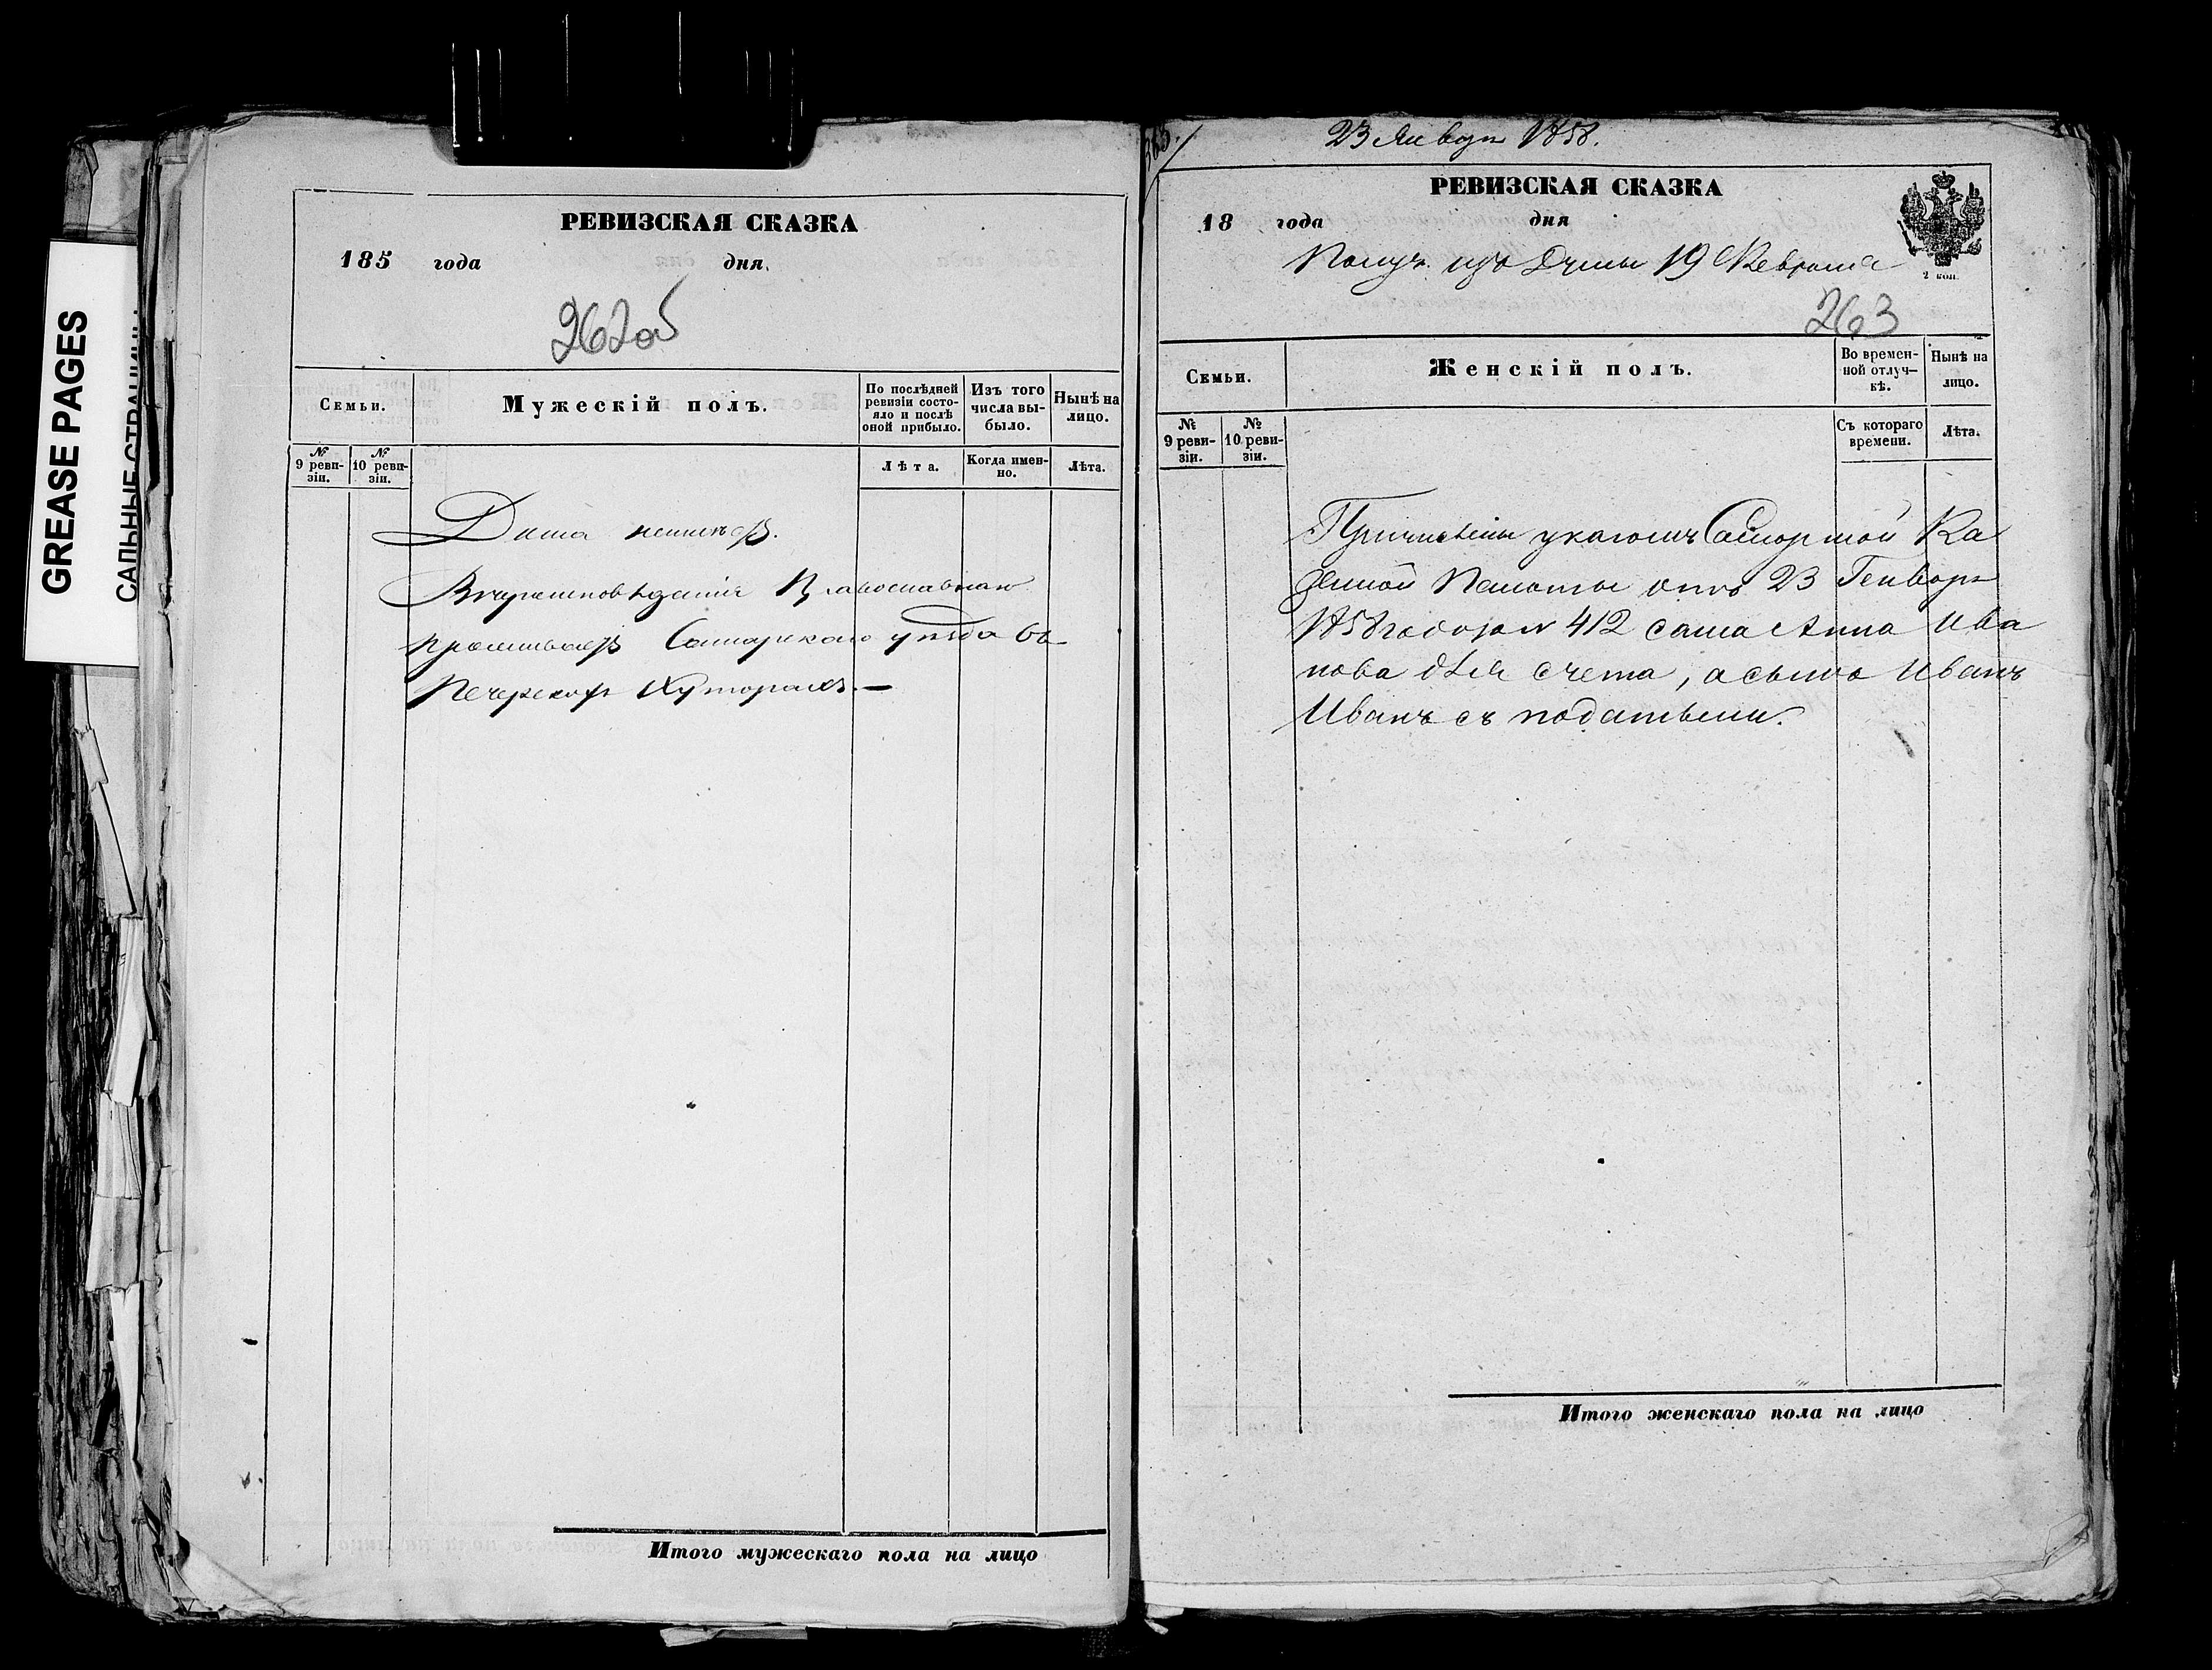 GREASE PAGES
САЛЬНЫЕ СТРАНИЦЫ
РЕВИЗСКАЯ СКАЗКА
185 года дня.
262об
Семьи.
Мужескій полъ.
По послѣдней ревизіи состояло и послѣ оной прибыло.
Изъ того числа выбыло.
Нынѣ на лицо.
№ 9 ревизіи.
№ 10 ревизіи.
Лѣта.
Когда именно.
Лѣта.
Дома неимѣетъ.
Вѣроисповѣданія Православнаго
проживаетъ Самарскаго уѣзда въ
Печерскихъ Хуторахъ.—
Итого мужескаго пола на лицо
363.
23 Января 1858.
РЕВИЗСКАЯ СКАЗКА
18 года дня
Получ. изъ Думы 19 Февраля
2 коп.
263
Семьи.
Женскій полъ.
Во временной отлучкѣ.
Нынѣ на лицо.
№ 9 ревизіи.
№ 10 ревизіи.
Съ котораго времени.
Лѣта.
Причислены указомъ Самарской Ка
зенной Палаты отъ 23 Генваря
1858 года за № 412 сама Анна Ива
нова для счета, а сынъ Иванъ
Иванъ съ податьми.
Итого женскаго пола на лицо